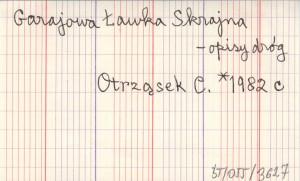 Garajowa Ławka Skrajna
- opisy dróg
Otrząsek C. *1982 c
/3627